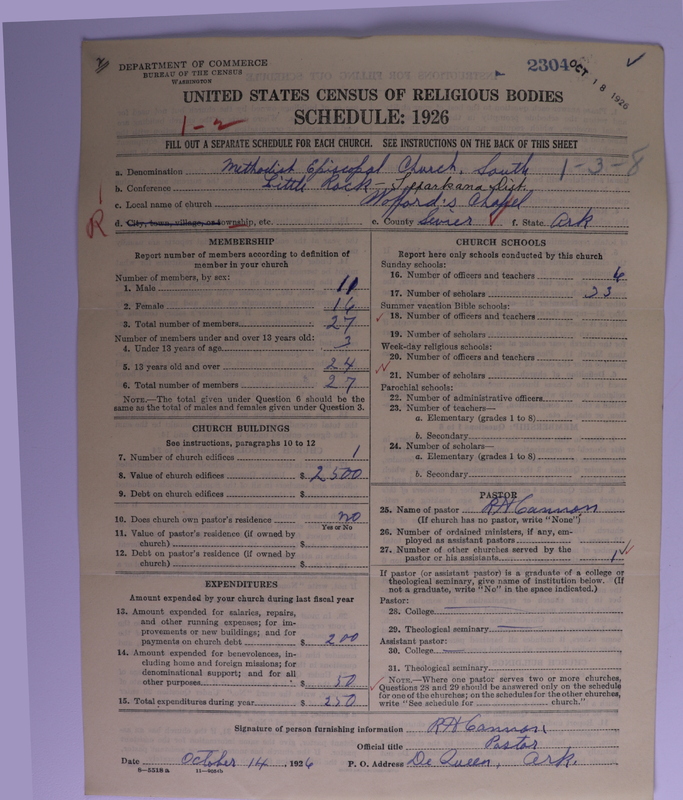 DEPARTMENT OF COMMERCE
BUREAU OF THE CENSUS
WASHINGTON
2304
OCT 18 1926
UNITED STATES CENSUS OF RELIGIOUS BODIES
SCHEDULE: 1926
1-2
FILL OUT A SEPARATE SCHEDULE FOR EACH CHURCH. SEE INSTRUCTIONS ON THE BACK OF THIS SHEET
a. Denomination Methodist Episcopal Church, South 1-3-8
b. Conference Little Rock - Texarkana Dist.
c. Local name of church Wofford's Chapel
R d. City, town, village, or township, etc. e. County Sevier f. State Ark
MEMBERSHIP
Report number of members according to definition of
member in your church
Number of members, by sex:
1. Male 11
2. Female 16
3. Total number of members 27
Number of members under and over 13 years old:
4. Under 13 years of age 3
5. 13 years old and over 24
6. Total number of members 27
NOTE.—The total given under Question 6 should be the
same as the total of males and females given under Question 3.
CHURCH BUILDINGS
See instructions, paragraphs 10 to 12
7. Number of church edifices 1
8. Value of church edifices $ 2500
9. Debt on church edifices $
10. Does church own pastor's residence No
Yes or No
11. Value of pastor's residence (if owned by
church) $
12. Debt on pastor's residence (if owned by
church) $
EXPENDITURES
Amount expended by your church during last fiscal year
13. Amount expended for salaries, repairs,
and other running expenses; for im-
provements or new buildings; and for
payments on church debt $ 200
14. Amount expended for benevolences, in-
cluding home and foreign missions; for
denominational support; and for all
other purposes $ 50
15. Total expenditures during year $ 250
CHURCH SCHOOLS
Report here only schools conducted by this church
Sunday schools:
16. Number of officers and teachers 6
17. Number of scholars 33
Summer vacation Bible schools:
18. Number of officers and teachers
19. Number of scholars
Week-day religious schools:
20. Number of officers and teachers
21. Number of scholars
Parochial schools:
22. Number of administrative officers
23. Number of teachers—
a. Elementary (grades 1 to 8)
b. Secondary
24. Number of scholars—
a. Elementary (grades 1 to 8)
b. Secondary
PASTOR
25. Name of pastor RH Cannon
(If church has no pastor, write "None")
26. Number of ordained ministers, if any, em-
ployed as assistant pastors
27. Number of other churches served by the
pastor or his assistants 1
If pastor (or assistant pastor) is a graduate of a college or
theological seminary, give name of institution below. (If
not a graduate, write "No" in the space indicated.)
Pastor:
28. College
29. Theological seminary
Assistant pastor:
30. College
31. Theological seminary
NOTE.—Where one pastor serves two or more churches,
Questions 28 and 29 should be answered only on the schedule
for one of the churches; on the schedules for the other churches,
write "See schedule for church."
Signature of person furnishing information RH Cannon
Official title Pastor
Date October 14, 1926 P. O. Address De Queen, Ark.
8-5518a